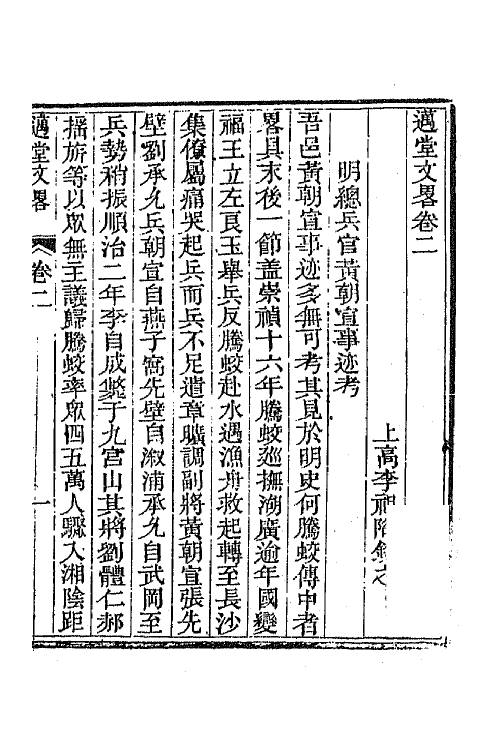 邁堂文畧卷二
上高李祖陶
明總兵官黃朝宣事迹考
吾邑黃朝宣事迹多無可考其見於明史何騰蛟傳中者
畧具末後一節蓋崇禎十六年騰蛟廵撫湖廣逾年國變
福王立左良玉舉兵反騰蛟赴水遇漁舟救起轉至長沙
集僚屬痛哭起兵而兵不足遣章曠調副將黃朝宣張先
壁劉承允兵朝宣自燕子窩先壁自漵浦承允自武岡至
兵勢稍振順治二年李自成斃于九宮山其將劉體仁郝
搖旂等以眾無主議歸騰蛟率眾四五萬人驟入湘陰距
邁堂文畧
卷二
一